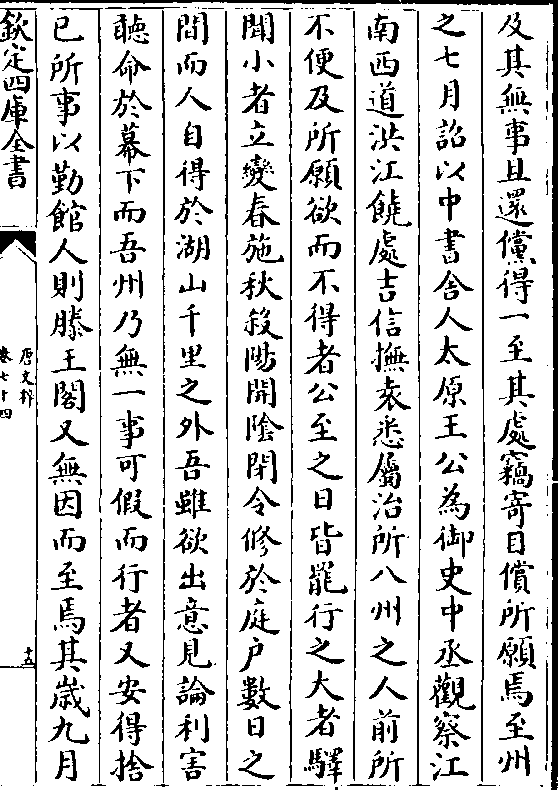 及其無事且還儻得一至其處竊寄目償所願焉至州
之七月詔以中書舍人太原王公為御史中丞觀察江
南西道洪江饒處吉信撫袁悉屬治所八州之人前所
不便及所願欲而不得者公至之日皆罷行之大者驛
聞小者立變春施秋殺陽開陰閉令修於庭户數日之
間而人自得於湖山千里之外吾雖欲出意見論利害
聽命於幕下而吾州乃無一事可假而行者又安得捨
已所事以勤館人則滕王閣又無因而至焉其歲九月
欽定四庫全書
唐文粹
卷七十四
十五